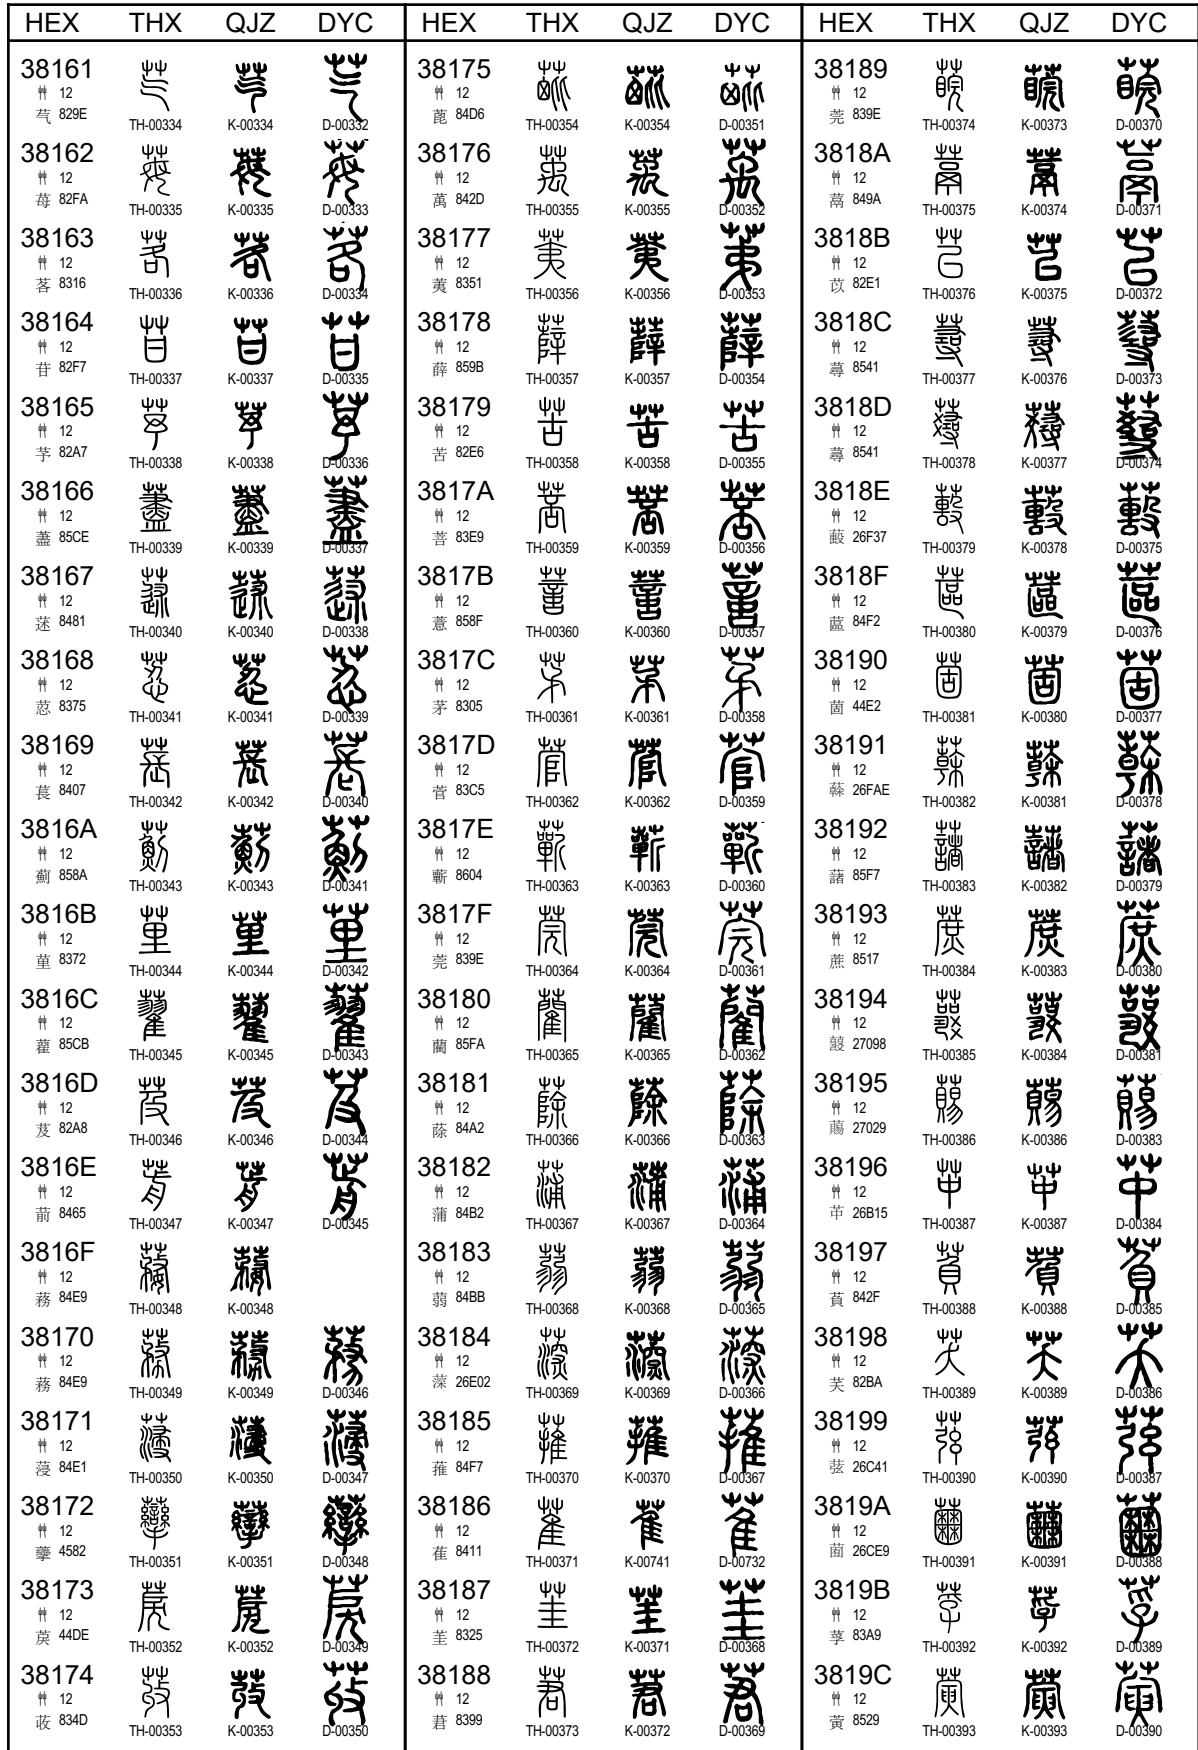 HEX THX QJZ DYC
38161
艸 12
芞 829E
TH-00334 K-00334 D-00332
38162
艸 12
苺 82FA
TH-00335 K-00335 D-00333
38163
艸 12
茖 8316
TH-00336 K-00336 D-00334
38164
艸 12
苷 82F7
TH-00337 K-00337 D-00335
38165
艸 12
芧 82A7
TH-00338 K-00338 D-00336
38166
艸 12
藎 85CE
TH-00339 K-00339 D-00337
38167
艸 12
蒁 8481
TH-00340 K-00340 D-00338
38168
艸 12
荵 8375
TH-00341 K-00341 D-00339
38169
艸 12
萇 8407
TH-00342 K-00342 D-00340
3816A
艸 12
薊 858A
TH-00343 K-00343 D-00341
3816B
艸 12
荲 8372
TH-00344 K-00344 D-00342
3816C
艸 12
藋 85CB
TH-00345 K-00345 D-00343
3816D
艸 12
芨 82A8
TH-00346 K-00346 D-00344
3816E
艸 12
葥 8465
TH-00347 K-00347 D-00345
3816F
艸 12
蓩 84E9
TH-00348 K-00348
38170
艸 12
蓩 84E9
TH-00349 K-00349 D-00346
38171
艸 12
蓡 84E1
TH-00350 K-00350 D-00347
38172
艸 12
䖂 4582
TH-00351 K-00351 D-00348
38173
艸 12
䓞 44DE
TH-00352 K-00352 D-00349
38174
艸 12
荍 834D
TH-00353 K-00353 D-00350
HEX THX QJZ DYC
38175
艸 12
蓖 84D6
TH-00354 K-00354 D-00351
38176
艸 12
萭 842D
TH-00355 K-00355 D-00352
38177
艸 12
荑 8351
TH-00356 K-00356 D-00353
38178
艸 12
薛 859B
TH-00357 K-00357 D-00354
38179
艸 12
苦 82E6
TH-00358 K-00358 D-00355
3817A
艸 12
菩 83E9
TH-00359 K-00359 D-00356
3817B
艸 12
薏 858F
TH-00360 K-00360 D-00357
3817C
艸 12
茅 8305
TH-00361 K-00361 D-00358
3817D
艸 12
菅 83C5
TH-00362 K-00362 D-00359
3817E
艸 12
蘄 8604
TH-00363 K-00363 D-00360
3817F
艸 12
莞 839E
TH-00364 K-00364 D-00361
38180
艸 12
藺 85FA
TH-00365 K-00365 D-00362
38181
艸 12
蒢 84A2
TH-00366 K-00366 D-00363
38182
艸 12
蒲 84B2
TH-00367 K-00367 D-00364
38183
艸 12
蒻 84BB
TH-00368 K-00368 D-00365
38184
艸 12
𦸂 26E02
TH-00369 K-00369 D-00366
38185
艸 12
蓷 84F7
TH-00370 K-00370 D-00367
38186
艸 12
萑 8411
TH-00371 K-00741 D-00732
38187
艸 12
茥 8325
TH-00372 K-00371 D-00368
38188
艸 12
莙 8399
TH-00373 K-00372 D-00369
HEX THX QJZ DYC
38189
艸 12
莞 839E
TH-00374 K-00373 D-00370
3818A
艸 12
蒚 849A
TH-00375 K-00374 D-00371
3818B
艸 12
苡 82E1
TH-00376 K-00375 D-00372
3818C
艸 12
蕁 8541
TH-00377 K-00376 D-00373
3818D
艸 12
蕁 8541
TH-00378 K-00377 D-00374
3818E
艸 12
𦼷 26F37
TH-00379 K-00378 D-00375
3818F
艸 12
蓲 84F2
TH-00380 K-00379 D-00376
38190
艸 12
䓢 44E2
TH-00381 K-00380 D-00377
38191
艸 12
𦾮 26FAE
TH-00382 K-00381 D-00378
38192
艸 12
藷 85F7
TH-00383 K-00382 D-00379
38193
艸 12
蔗 8517
TH-00384 K-00383 D-00380
38194
艸 12
𧂘 27098
TH-00385 K-00384 D-00381
38195
艸 12
𧀩 27029
TH-00386 K-00386 D-00383
38196
艸 12
𦬕 26B15
TH-00387 K-00387 D-00384
38197
艸 12
萯 842F
TH-00388 K-00388 D-00385
38198
艸 12
芺 82BA
TH-00389 K-00389 D-00386
38199
艸 12
𦱁 26C41
TH-00390 K-00390 D-00387
3819A
艸 12
𦳩 26CE9
TH-00391 K-00391 D-00388
3819B
艸 12
莩 83A9
TH-00392 K-00392 D-00389
3819C
艸 12
蔩 8529
TH-00393 K-00393 D-00390